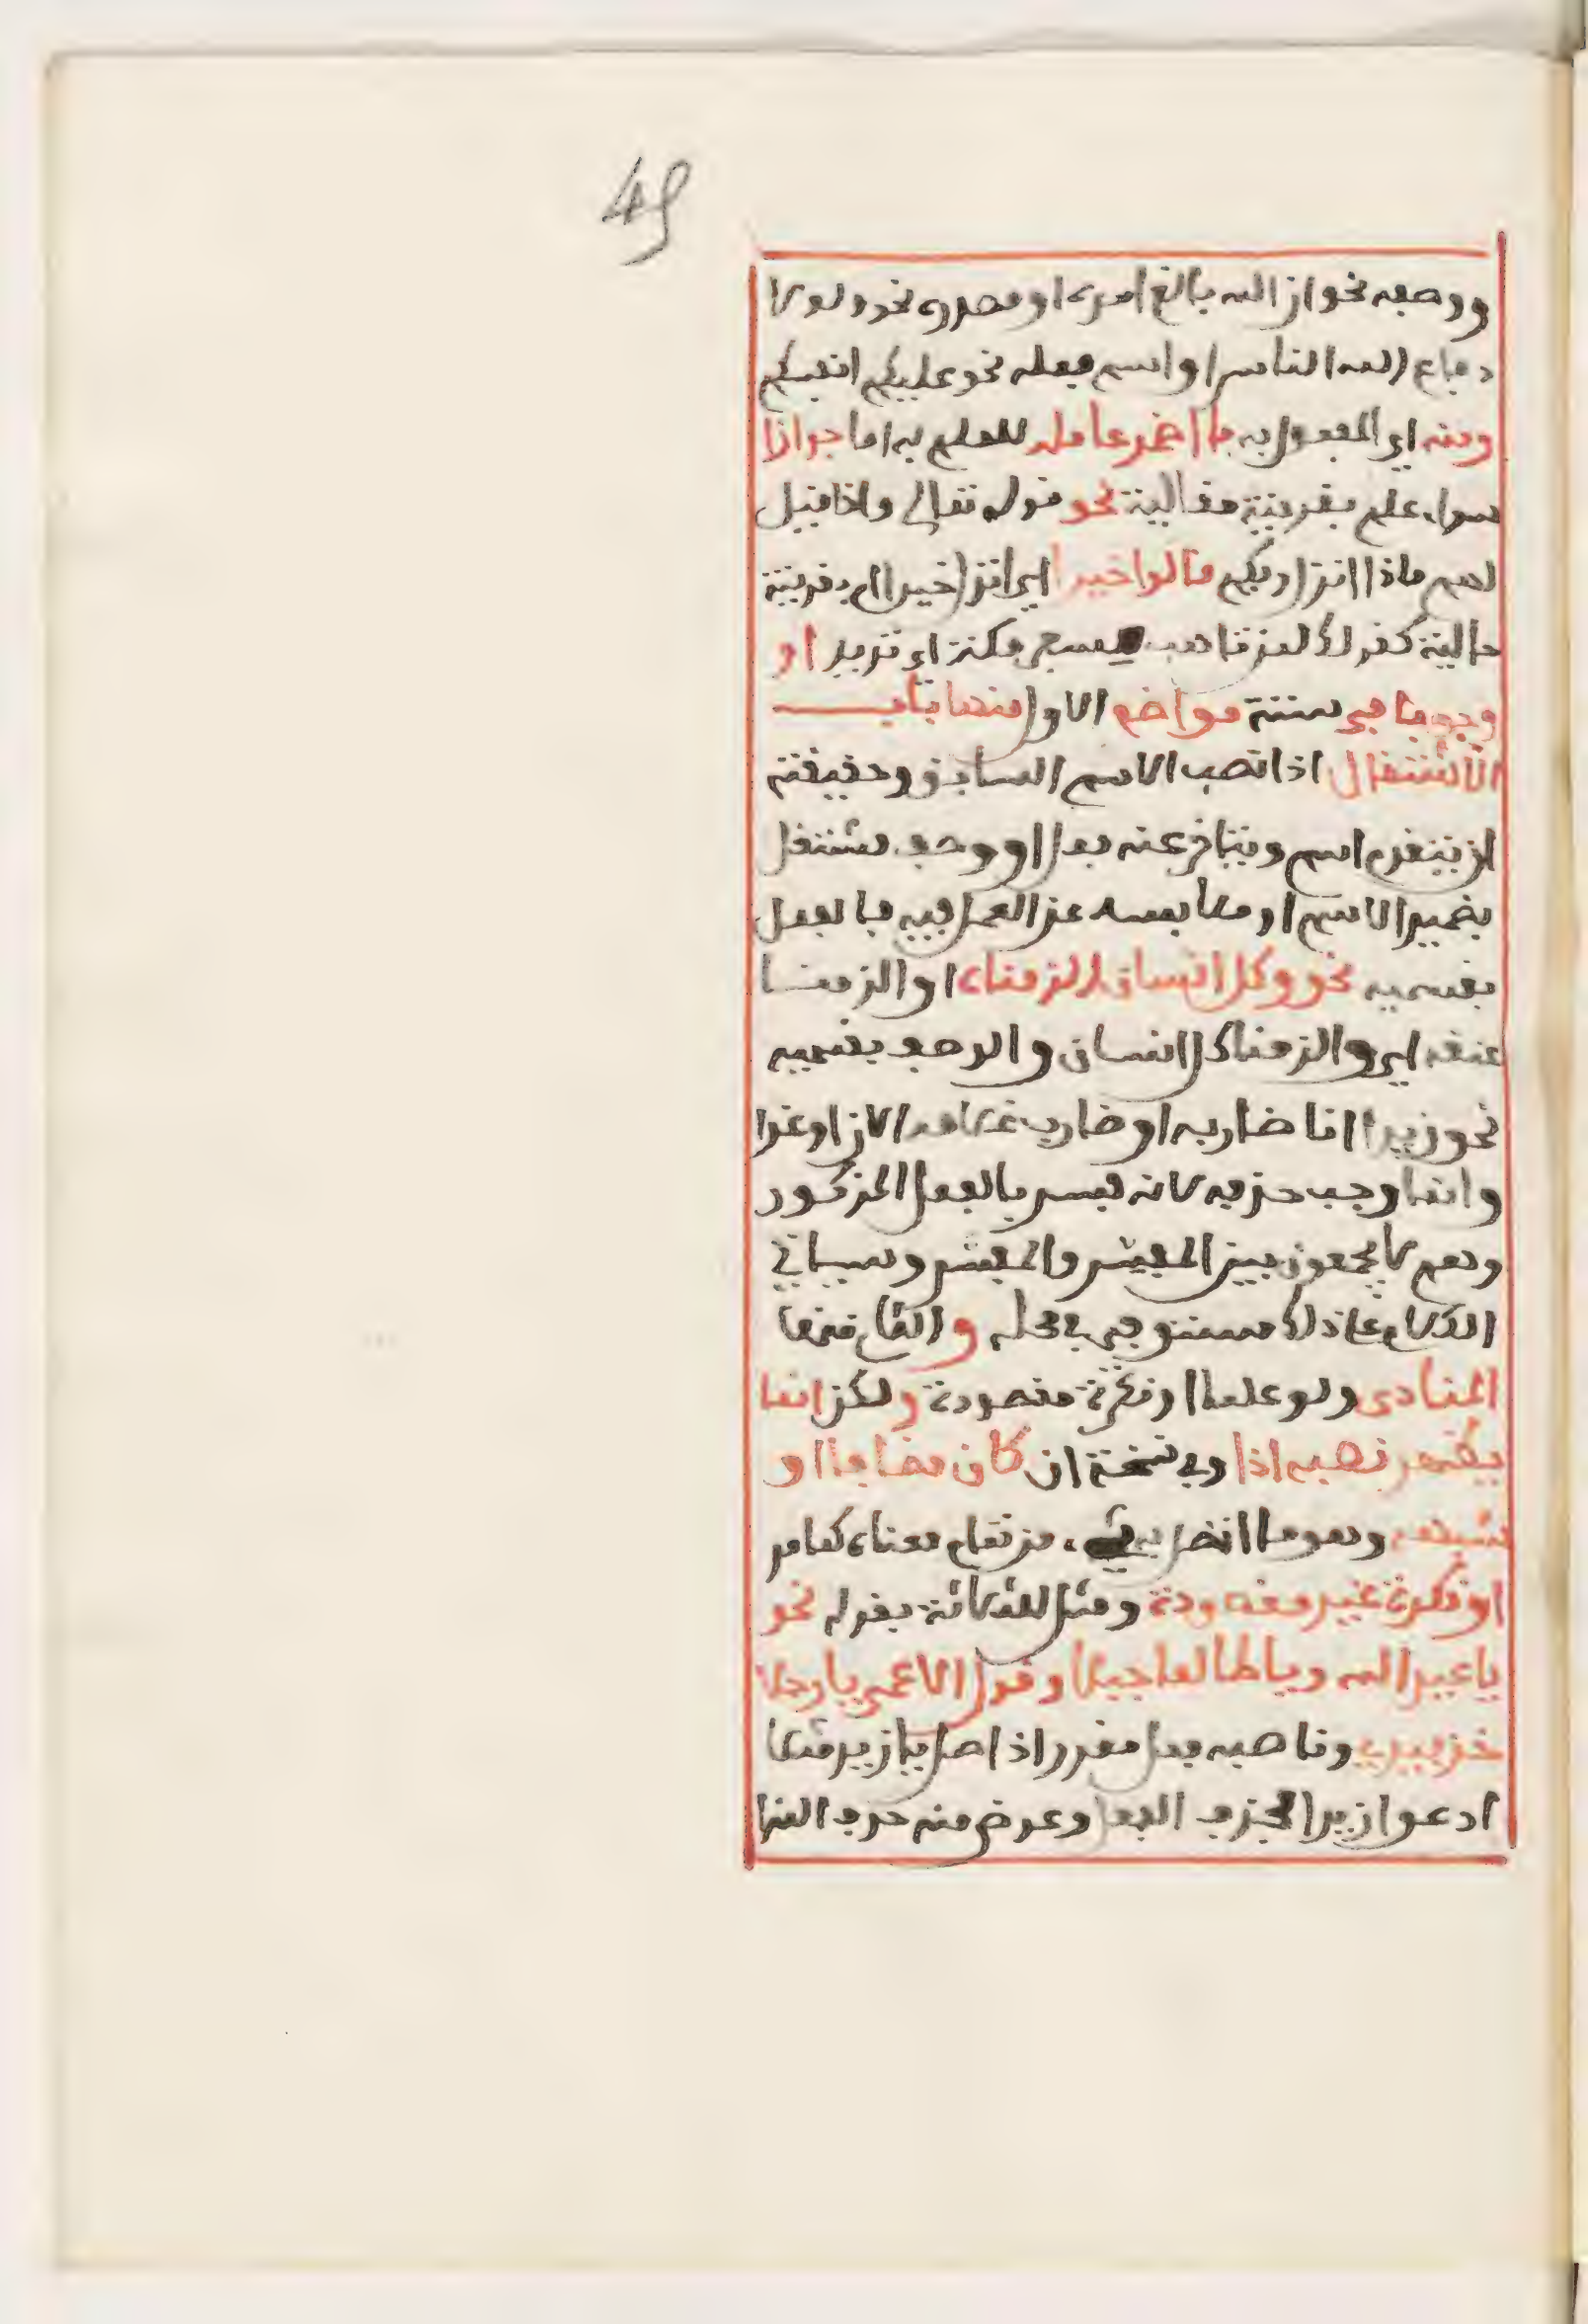 49
ووصفه نحو ان الله بالغ امره او مصدره نحو ولولا
دفاع الله الناس او اسم فعله نحو عليكم انفسكم
ومنه اي المفعول به ما اضمر عامله للعلم به اما جوازا
سواء علم بقرينة مقالية نحو قوله تعالى واذا قيل
لهم ماذا انزل ربكم قالوا خيرا اي انزل خيرا ام بقرينة
حالية كقولك لمن تاهب لسفر مكة اي تريد او
وجوبا في ستة مواضع الاول منها باب
الاشتغال اذا نصب الاسم السابق وحقيقته
ان يتقدم اسم ويتاخر عنه فعل او وصف مشتغل
بضمير الاسم او ملابسه عن العمل فيه فالفعل
بقسميه نحو وكل انسان الزمناه او الزمنا
عنقه اي والزمنا كل انسان والوصف بقسميه
نحو زيدا انا ضاربه او ضارب غلامه الان او غدا
وانما وجب حذفه لانه فسر بالفعل المذكور
وهم لا يجمعون بين المفسر والمفسر وسياتي
الكلام على ذلك مستوفى في محله و الثاني منها
المنادى ولو علما او نكرة مقصودة ولكن انما
يظهر نصبه اذا وفي نسخة ان كان مضافا او
شبهه وهو ما اتصل به شيء من تمام معناه كما مر
او نكرة غير مقصودة ومثل للثلاثة بقوله نحو
يا عبد الله ويا طالعا جبلا وقول الاعمى يا رجلا
خذ بيدي وناصبه فعل مقدر اذ اصل يا زيد مثلا
ادعوا زيدا فحذف الفعل وعوض منه حرف الندا